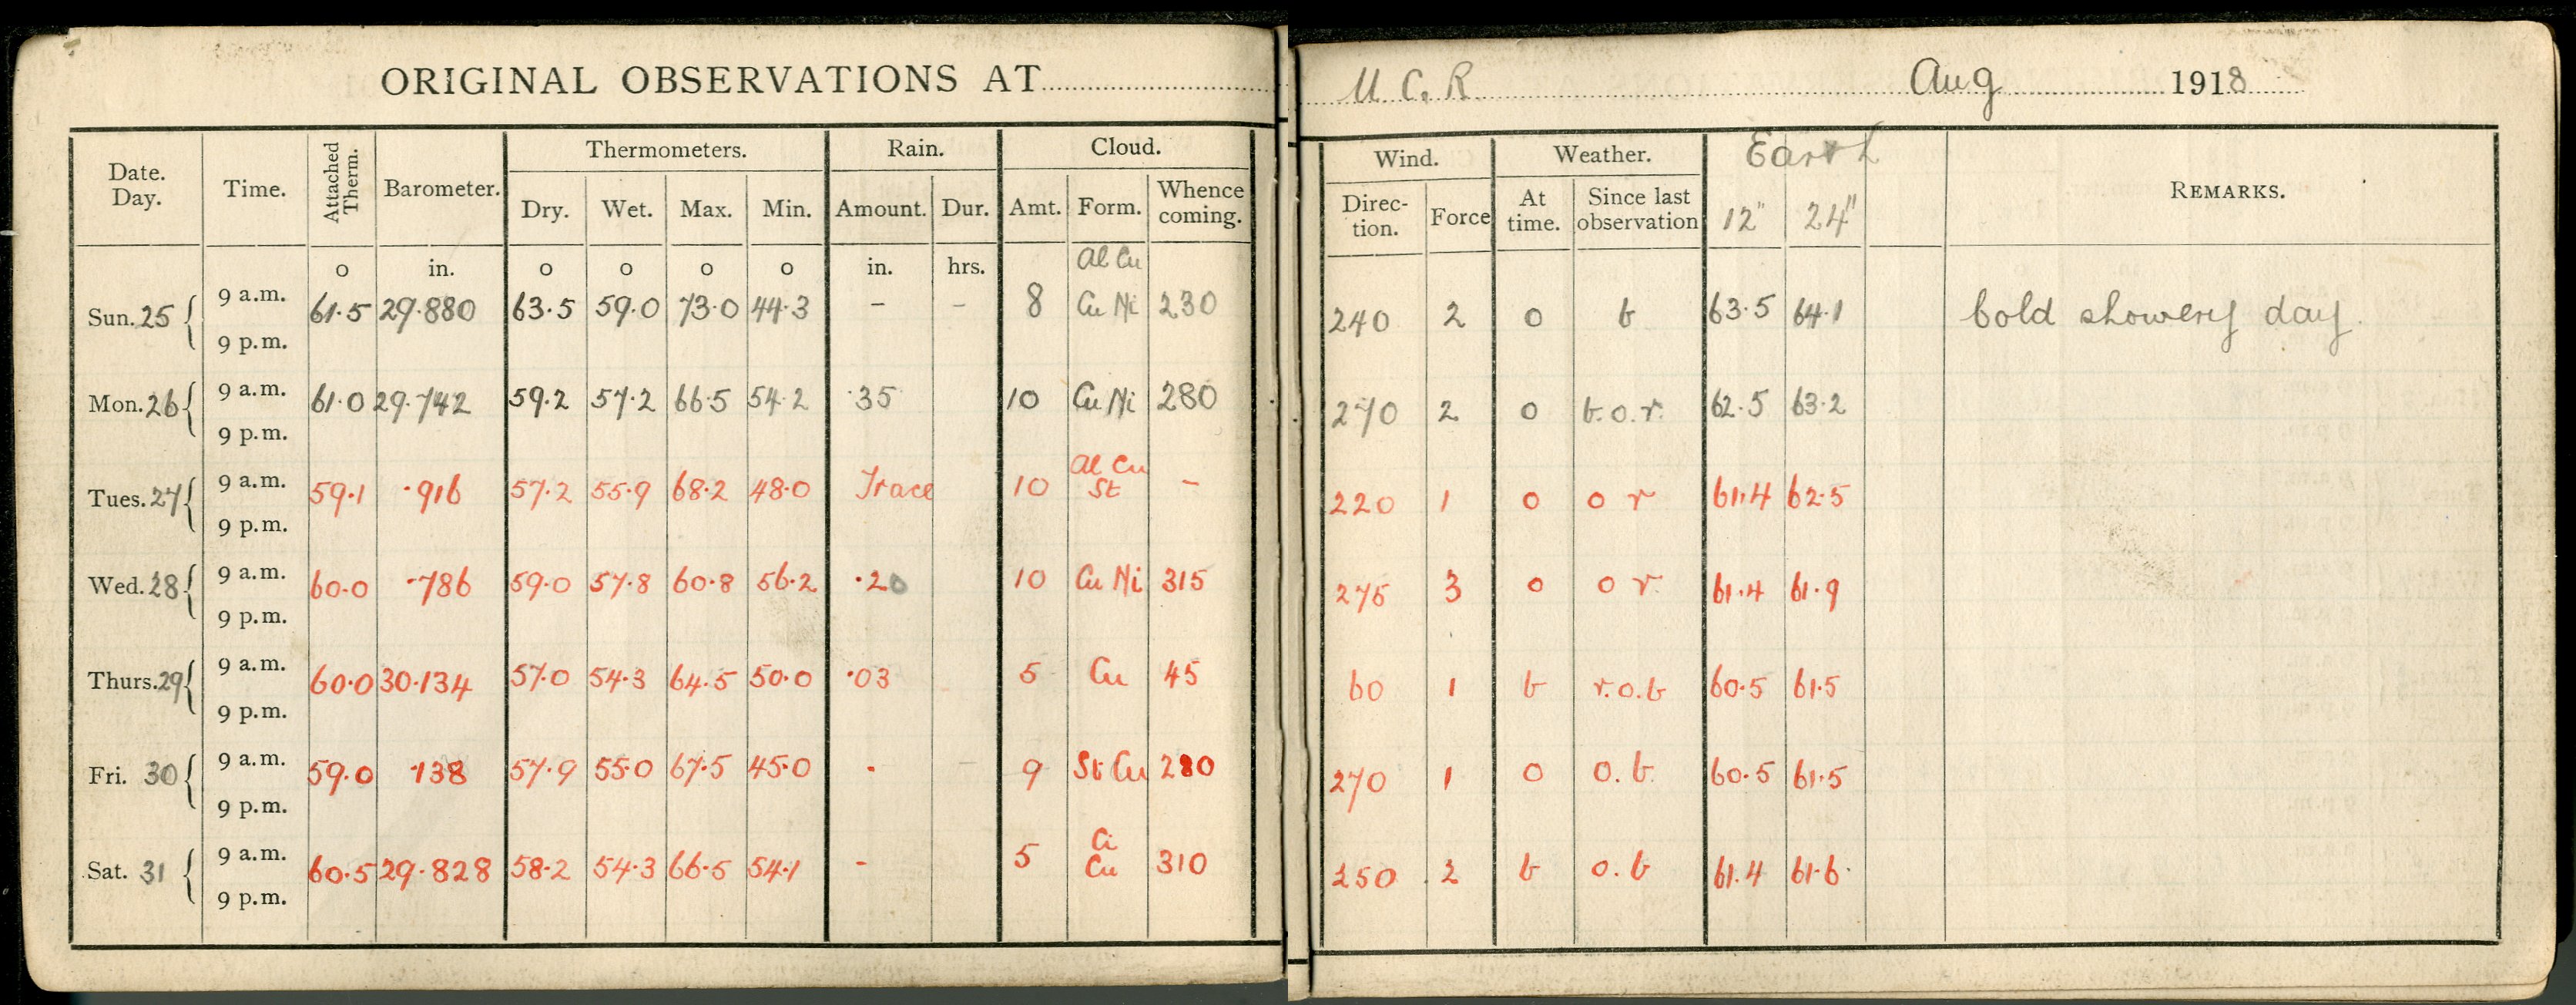 ORIGINAL OBSERVATIONS AT U.C.R. Aug 1918
Date. Day. Time. Attached Therm. Barometer. Thermometers. Rain. Cloud. Wind. Weather. Earth REMARKS.
Dry. Wet. Max. Min. Amount. Dur. Amt. Form. Whence coming. Direc- tion. Force At time. Since last observation 12" 24"
o in. o o o o in. hrs. Al Cu
Sun. 25 9 a.m. 61.5 29.880 63.5 59.0 73.0 44.3 - - 8 Cu Ni 230 240 2 o b 63.5 64.1 Cold showery day.
9 p.m.
Mon. 26 9 a.m. 61.0 29.742 59.2 57.2 66.5 54.2 .35 10 Cu Ni 280 270 2 o b.o.r. 62.5 63.2
9 p.m.
Tues. 27 9 a.m. 59.1 .916 57.2 55.9 68.2 48.0 Trace 10 Al Cu St - 220 1 o o r 61.4 62.5
9 p.m.
Wed. 28 9 a.m. 60.0 .786 59.0 57.8 60.8 56.2 .20 10 Cu Ni 315 275 3 o o r. 61.4 61.9
9 p.m.
Thurs. 29 9 a.m. 60.0 30.134 57.0 54.3 64.5 50.0 .03 5 Cu 45 60 1 b r.o.b 60.5 61.5
9 p.m.
Fri. 30 9 a.m. 59.0 .138 57.9 55.0 67.5 45.0 - - 9 St Cu 280 270 1 o o.b. 60.5 61.5
9 p.m.
Sat. 31 9 a.m. 60.5 29.828 58.2 54.3 66.5 54.1 - 5 Ci Cu 310 250 2 b o.b 61.4 61.6
9 p.m.